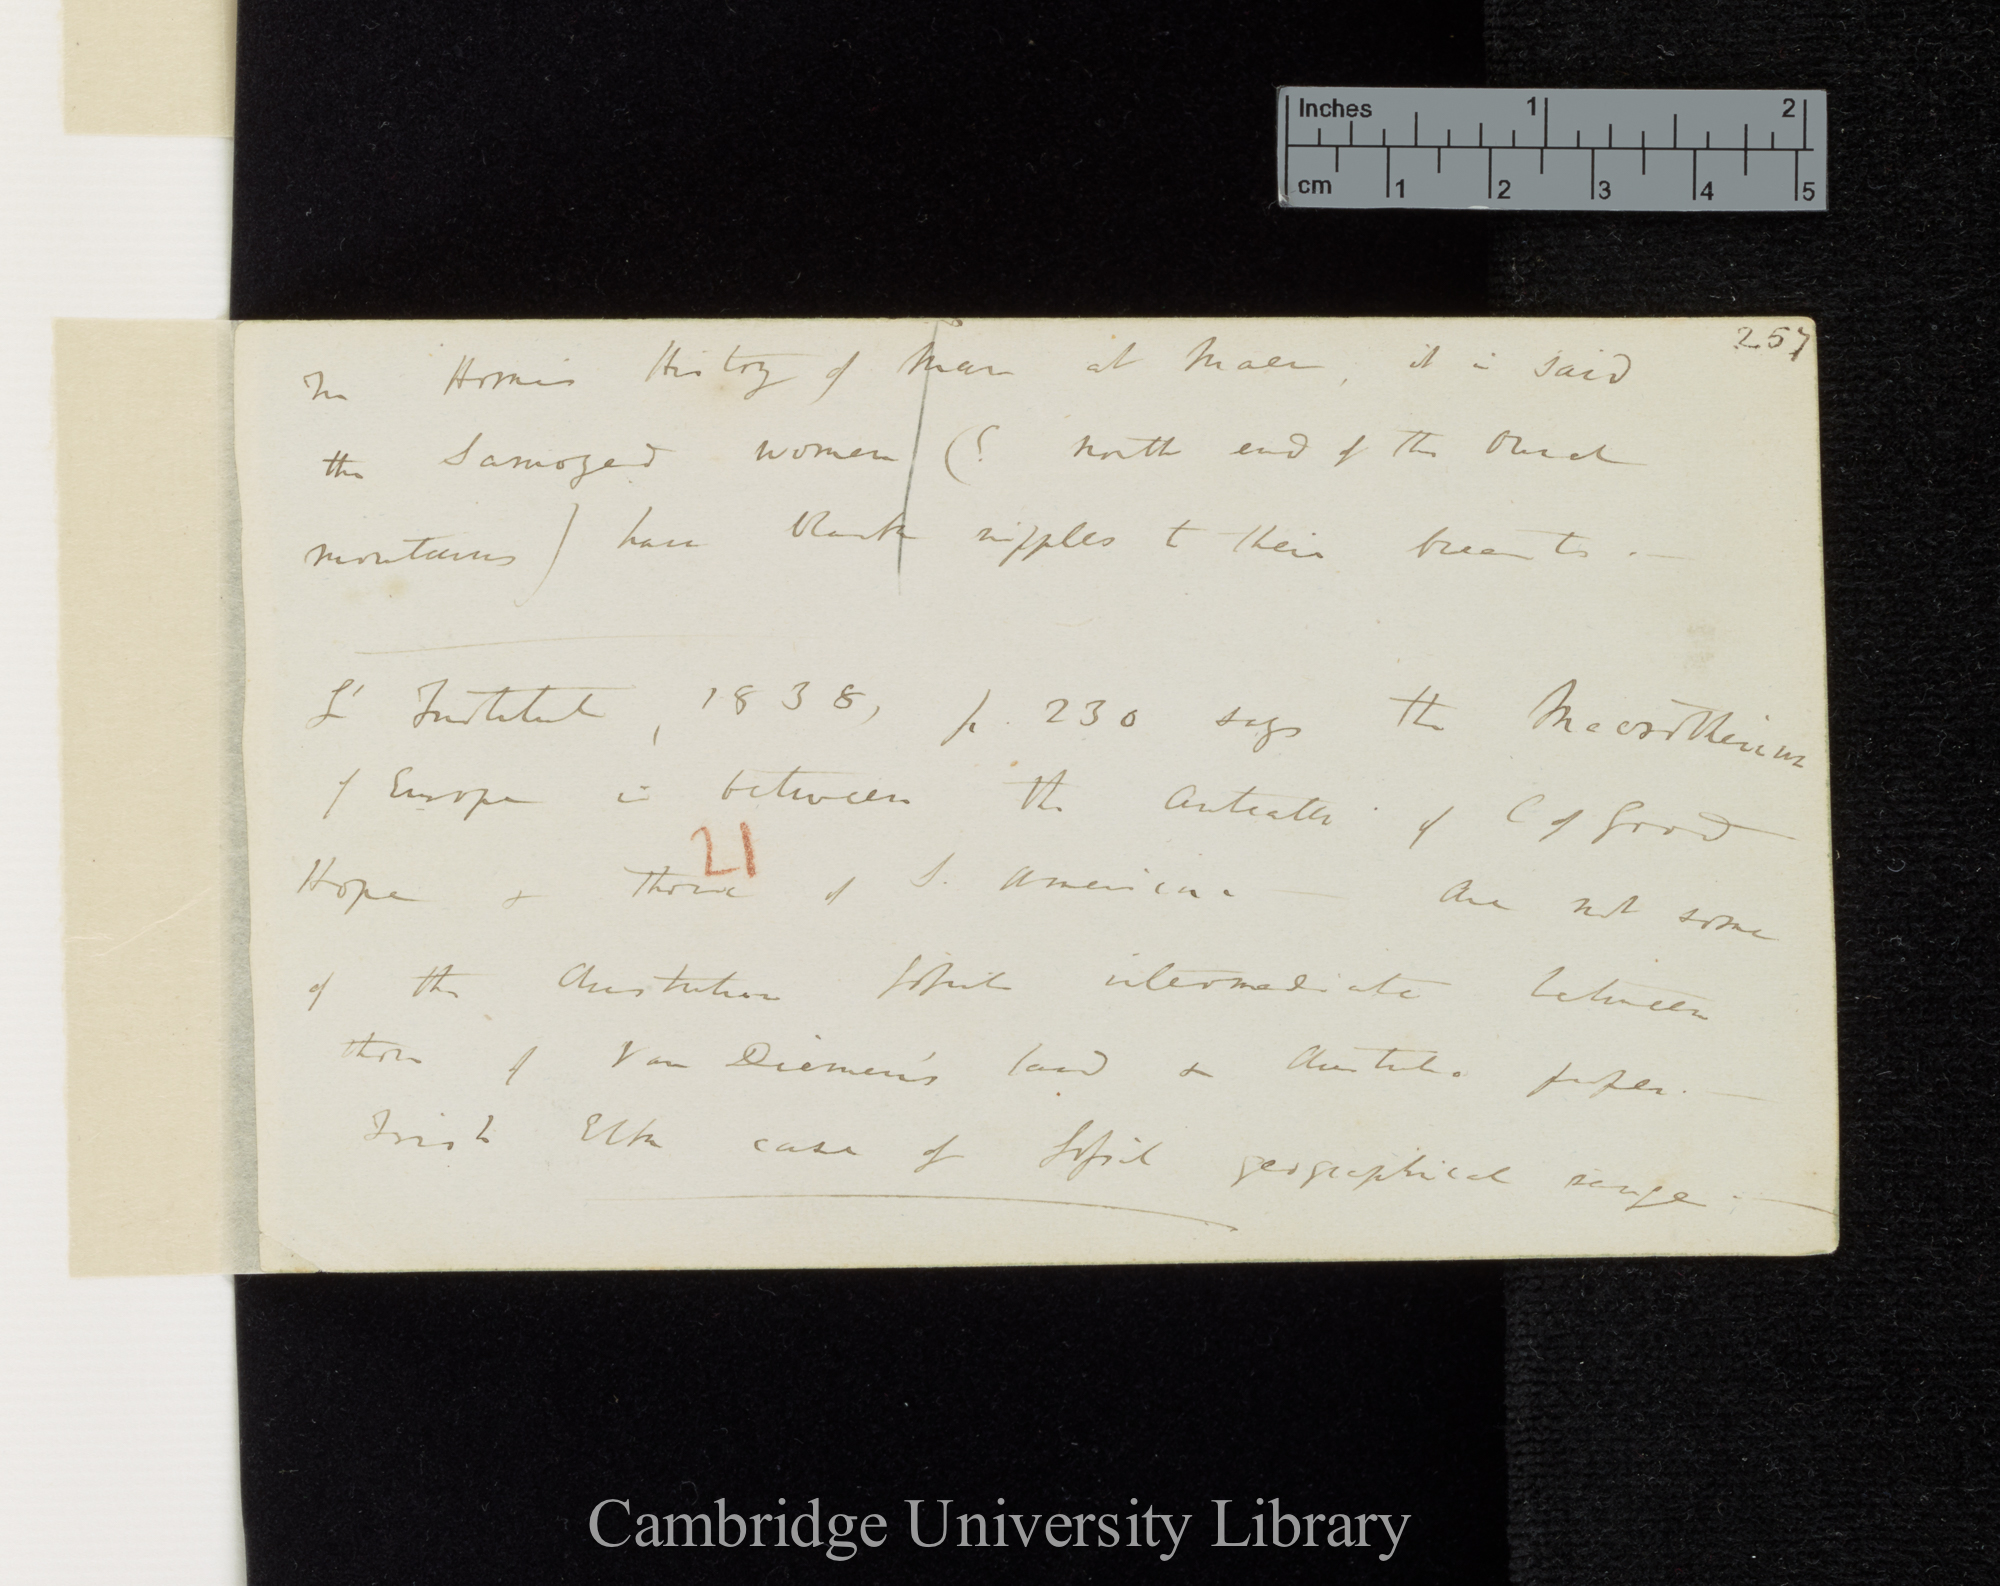 257
In Home's History of Man at Maer, it is said
the Samoyed women (? north end of the Oural
montains) have black nipples to their breasts.—
L'Institut, 1838, p. 230 says the Macrotherium
of Europe is between the anteater of C of Good
Hope & those of S. America.— Are not some
21
of the Australian fossils intermediate between
those of Van Diemen's land & Australia proper.—
Irish Elk case of fossil geographical range.—
Inches 1 2
cm 1 2 3 4 5
Cambridge University Library